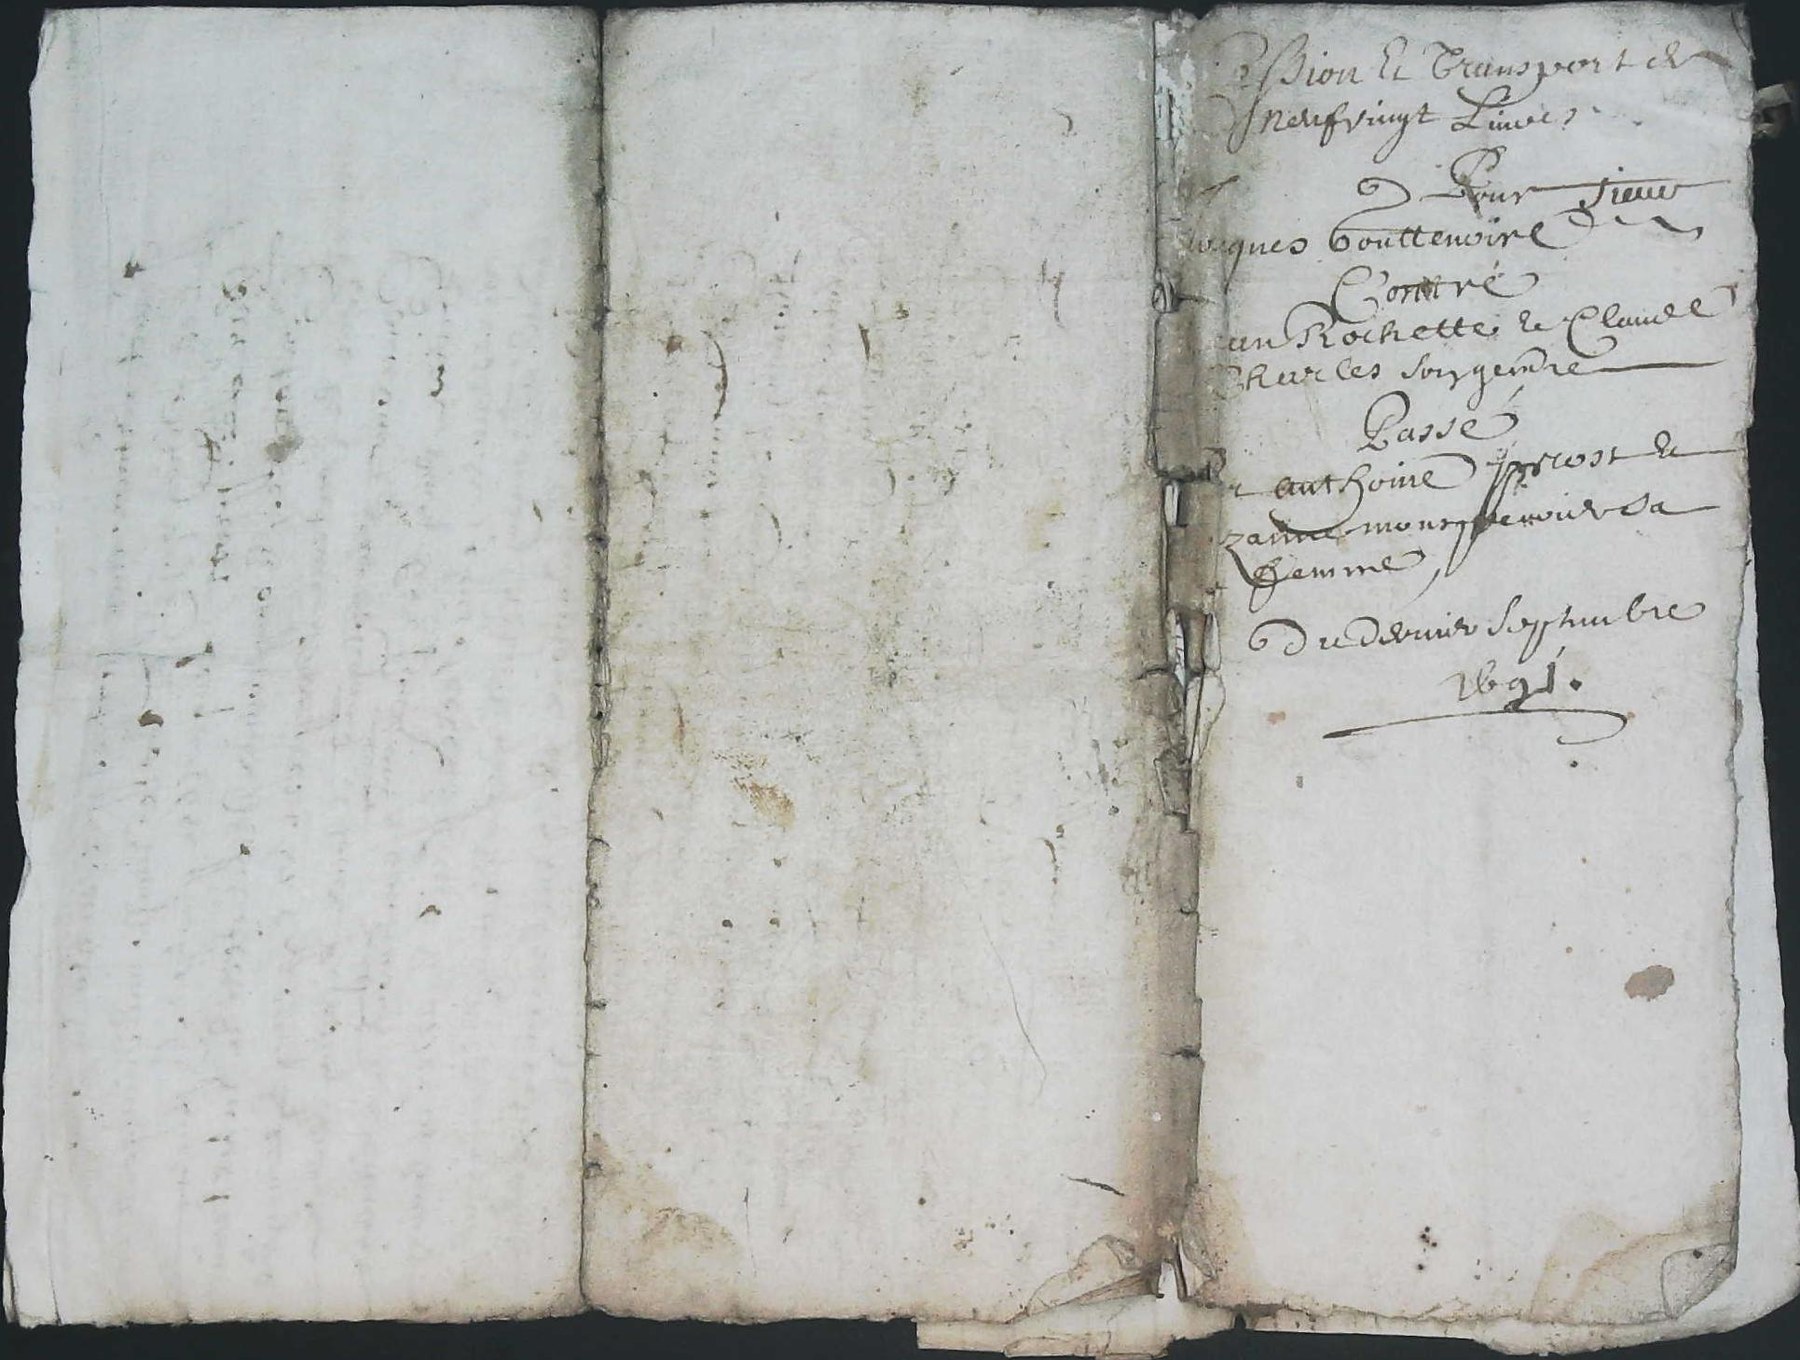 ession Et Transport de
neufvingt Livres
Pour sieur
Jacques bouttenoire
Contre
ean Rochette & Claude
Charles son gendre
Passé
r anthoine prost &
zanne sa
femme,
Du dernier septembre
1691.